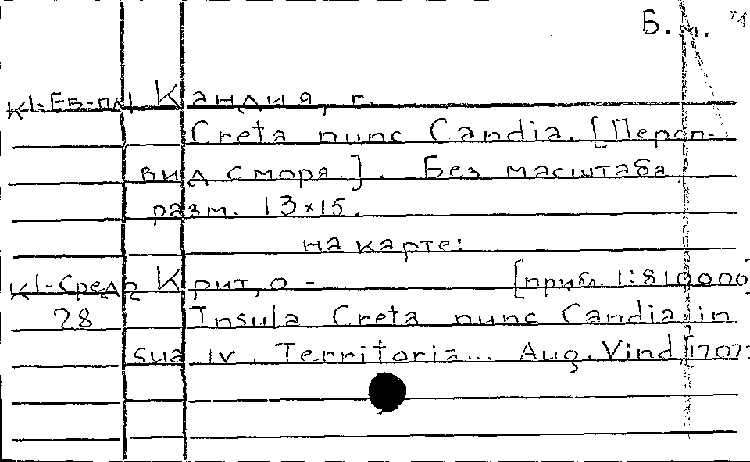 Б.м.
К1-Ев-пл Кандия, г.
Creta nunc Candia. [Персп.
вид с моря]. Без масштаба
разм. 13×15.
на карте:
К1-Средз Крит, о - [приб. 1:810000]
28 Insula Creta nunc Candia in
sua IV. Territoria... Aug. Vind. [1707?